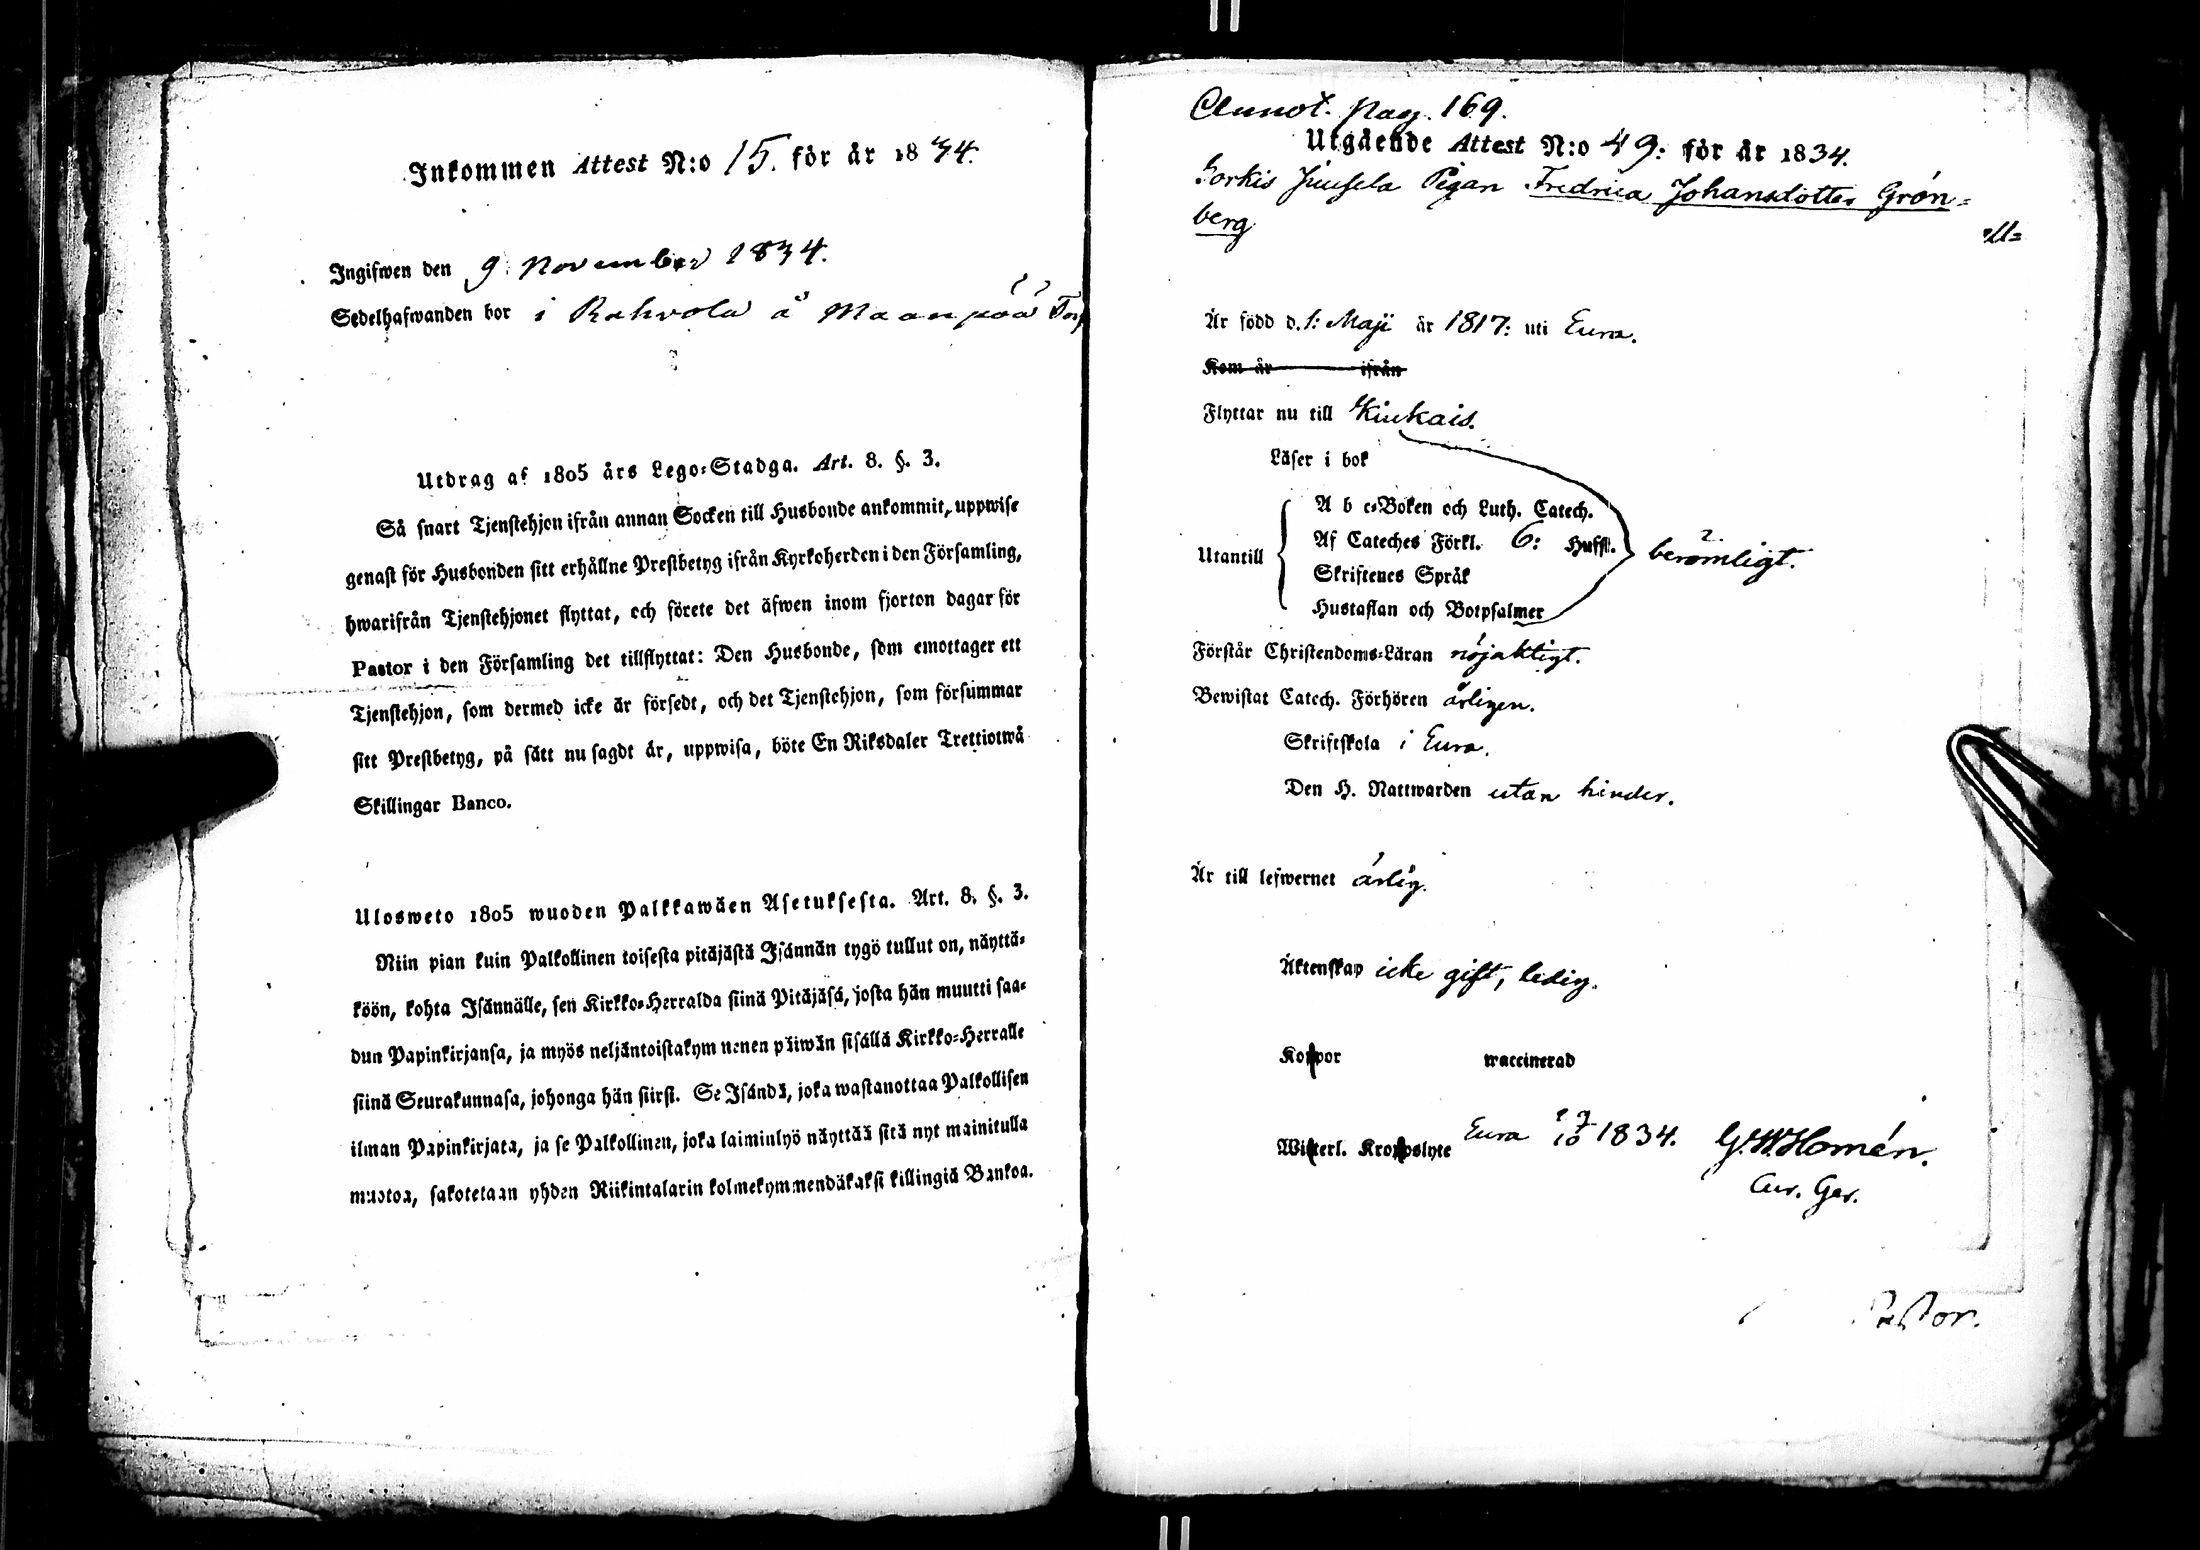 Inkommen Attest N:o 15. för år 1834.
Ingifwen den 9 November 1834.
Sedelhafwanden bor i Rahvola å Maanpää Torp
Utdrag af 1805 års Lego-Stadga. Art. 8. §. 3.
Så snart Tjenstehjon ifrån annan Socken till Husbonde ankommit, uppwise
genast för Husbonden sitt erhållne Prestbetyg ifrån Kyrkoherden i den Församling,
hwarifrån Tjenstehjonet flyttat, och förete det äfwen inom fjorton dagar för
Pastor i den Församling det tillflyttat: Den Husbonde, som emottager ett
Tjenstehjon, som dermed icke är försedt, och det Tjenstehjon, som försummar
sitt Prestbetyg, på sätt nu sagdt är, uppwisa, böte En Riksdaler Trettiotwå
Skillingar Banco.
Ulosweto 1805 wuoden Palkkawäen Asetuksesta. Art. 8. §. 3.
Niin pian kuin Palkollinen toisesta pitäjästä Isännän tygö tullut on, näyttä-
köön, kohta Isännälle, sen Kirkko-Herralda siinä Pitäjäsä, josta hän muutti saa-
dun Papinkirjansa, ja myös neljäntoistakymmenen päiwän sisällä Kirkko-Herralle
siinä Seurakunnasa, johonga hän siirsi. Se Isändä, joka wastanottaa Palkollisen
ilman Papinkirjata, ja se Palkollinen, joka laiminlyö näyttää sitä nyt mainitulla
muotoa, sakotetaan yhden Riikintalarin kolmekymmendäkaksi killingiä Bankoa.
Annot. pag. 169.
Utgående Attest N:o 49: för år 1834.
Pigan Fredrica Johansdotter Grön-
berg
Är född d. 1: Maji år 1817: uti Eura.
Kom år ifrån
Flyttar nu till Kiukais.
Läser i bok
A b c-Boken och Luth. Catech.
Utantill Af Cateches Förkl. 6: Hufst. berömligt.
Skriftenes Språk
Hustaflan och Botpsalmer
Förstår Christendoms-Läran nöjaktigt.
Bewistat Catech. Förhören årligen.
Skriftskola i Eura.
Den H. Nattwarden utan hinder.
Är till lefwernet ärlig.
Äktenskap icke gift, ledig.
Koppor waccinerad
Witterl. Kroppslyte Eura 1834. G. W. Homén.
Pastor.